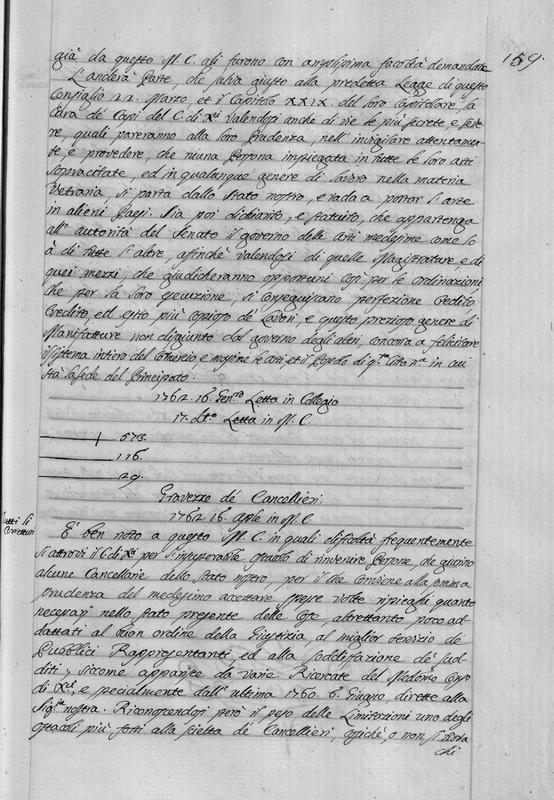 159.
già da questo M. C. gli furono con amplissima facoltà demandate
L'anderà Parte, che salva giusto alla predetta Legge di questo
Consiglio 22. Marzo, et il Capitolo XXIX. del loro Capitolare, la
cura de' Capi del C. di Xci valendosi anche di vie le più secrete, e seve
re quali pareranno alla loro Prudenza, nell'invigilare attentamen
te, e provedere, che niuna Persona impiegata in tutte le loro arti
sopracitate, ed in qualunque genere di lavoro nella materia
Vetraria, si parta dallo stato nostro, e vada a portar l'arte
in alieni Paesi. Sia poi dichiarito, e statuito, che appartenga
all'autorità del Senato il governo delle Arti medesime come lo
à di tutte l'altre, affinchè valendosi di quelle Magistrature, e di
quei mezzi, che giudicheranno opportuni così per le ordinazioni
che per la loro esecuzione, si conseguiscano perfezione
Credito, ed esito più copioso de' Lavori, e questo prezioso genere di
Manifatture non disgiunto dal governo degli altri, concorra a felicitare
il sistema intiero del Comercio, e in cui
stà la sede del Principato.
1762. 16. Genro Letta in Collegio
17. dto Letta in M. C.
573.
116.
29.
Gravezze de' Cancellieri
1762. 16. Aple in M. C.
È ben noto a questo M. C. in quali difficoltà frequentemente
si attrovi il C. di Xci per l'insuperabile ostacolo di invenire Persone, che guarino
alcune Cancellarie dello stato nostro, per il che conviene alla somma
prudenza del medesimo accettare spesse volte ripieghi quanto
necessarj nello stato presente delle Cose, altrettanto poco ad-
dattati al buon ordine della Giustizia, al miglior servizio de'
Pubblici Rappresentanti ed alla soddisfazione de' sud-
diti, siccome apparisce da varie Ricercate del Medemo Capo
di Xci, e specialmente dall'ultima 1760. 6. Giugno, dirette alla
Sigria nostra. Riconoscendosi però il peso delle Limitazioni uno degli
ostacoli più forti alla scielta de' Cancellieri, cosichè, o non si trova
chi